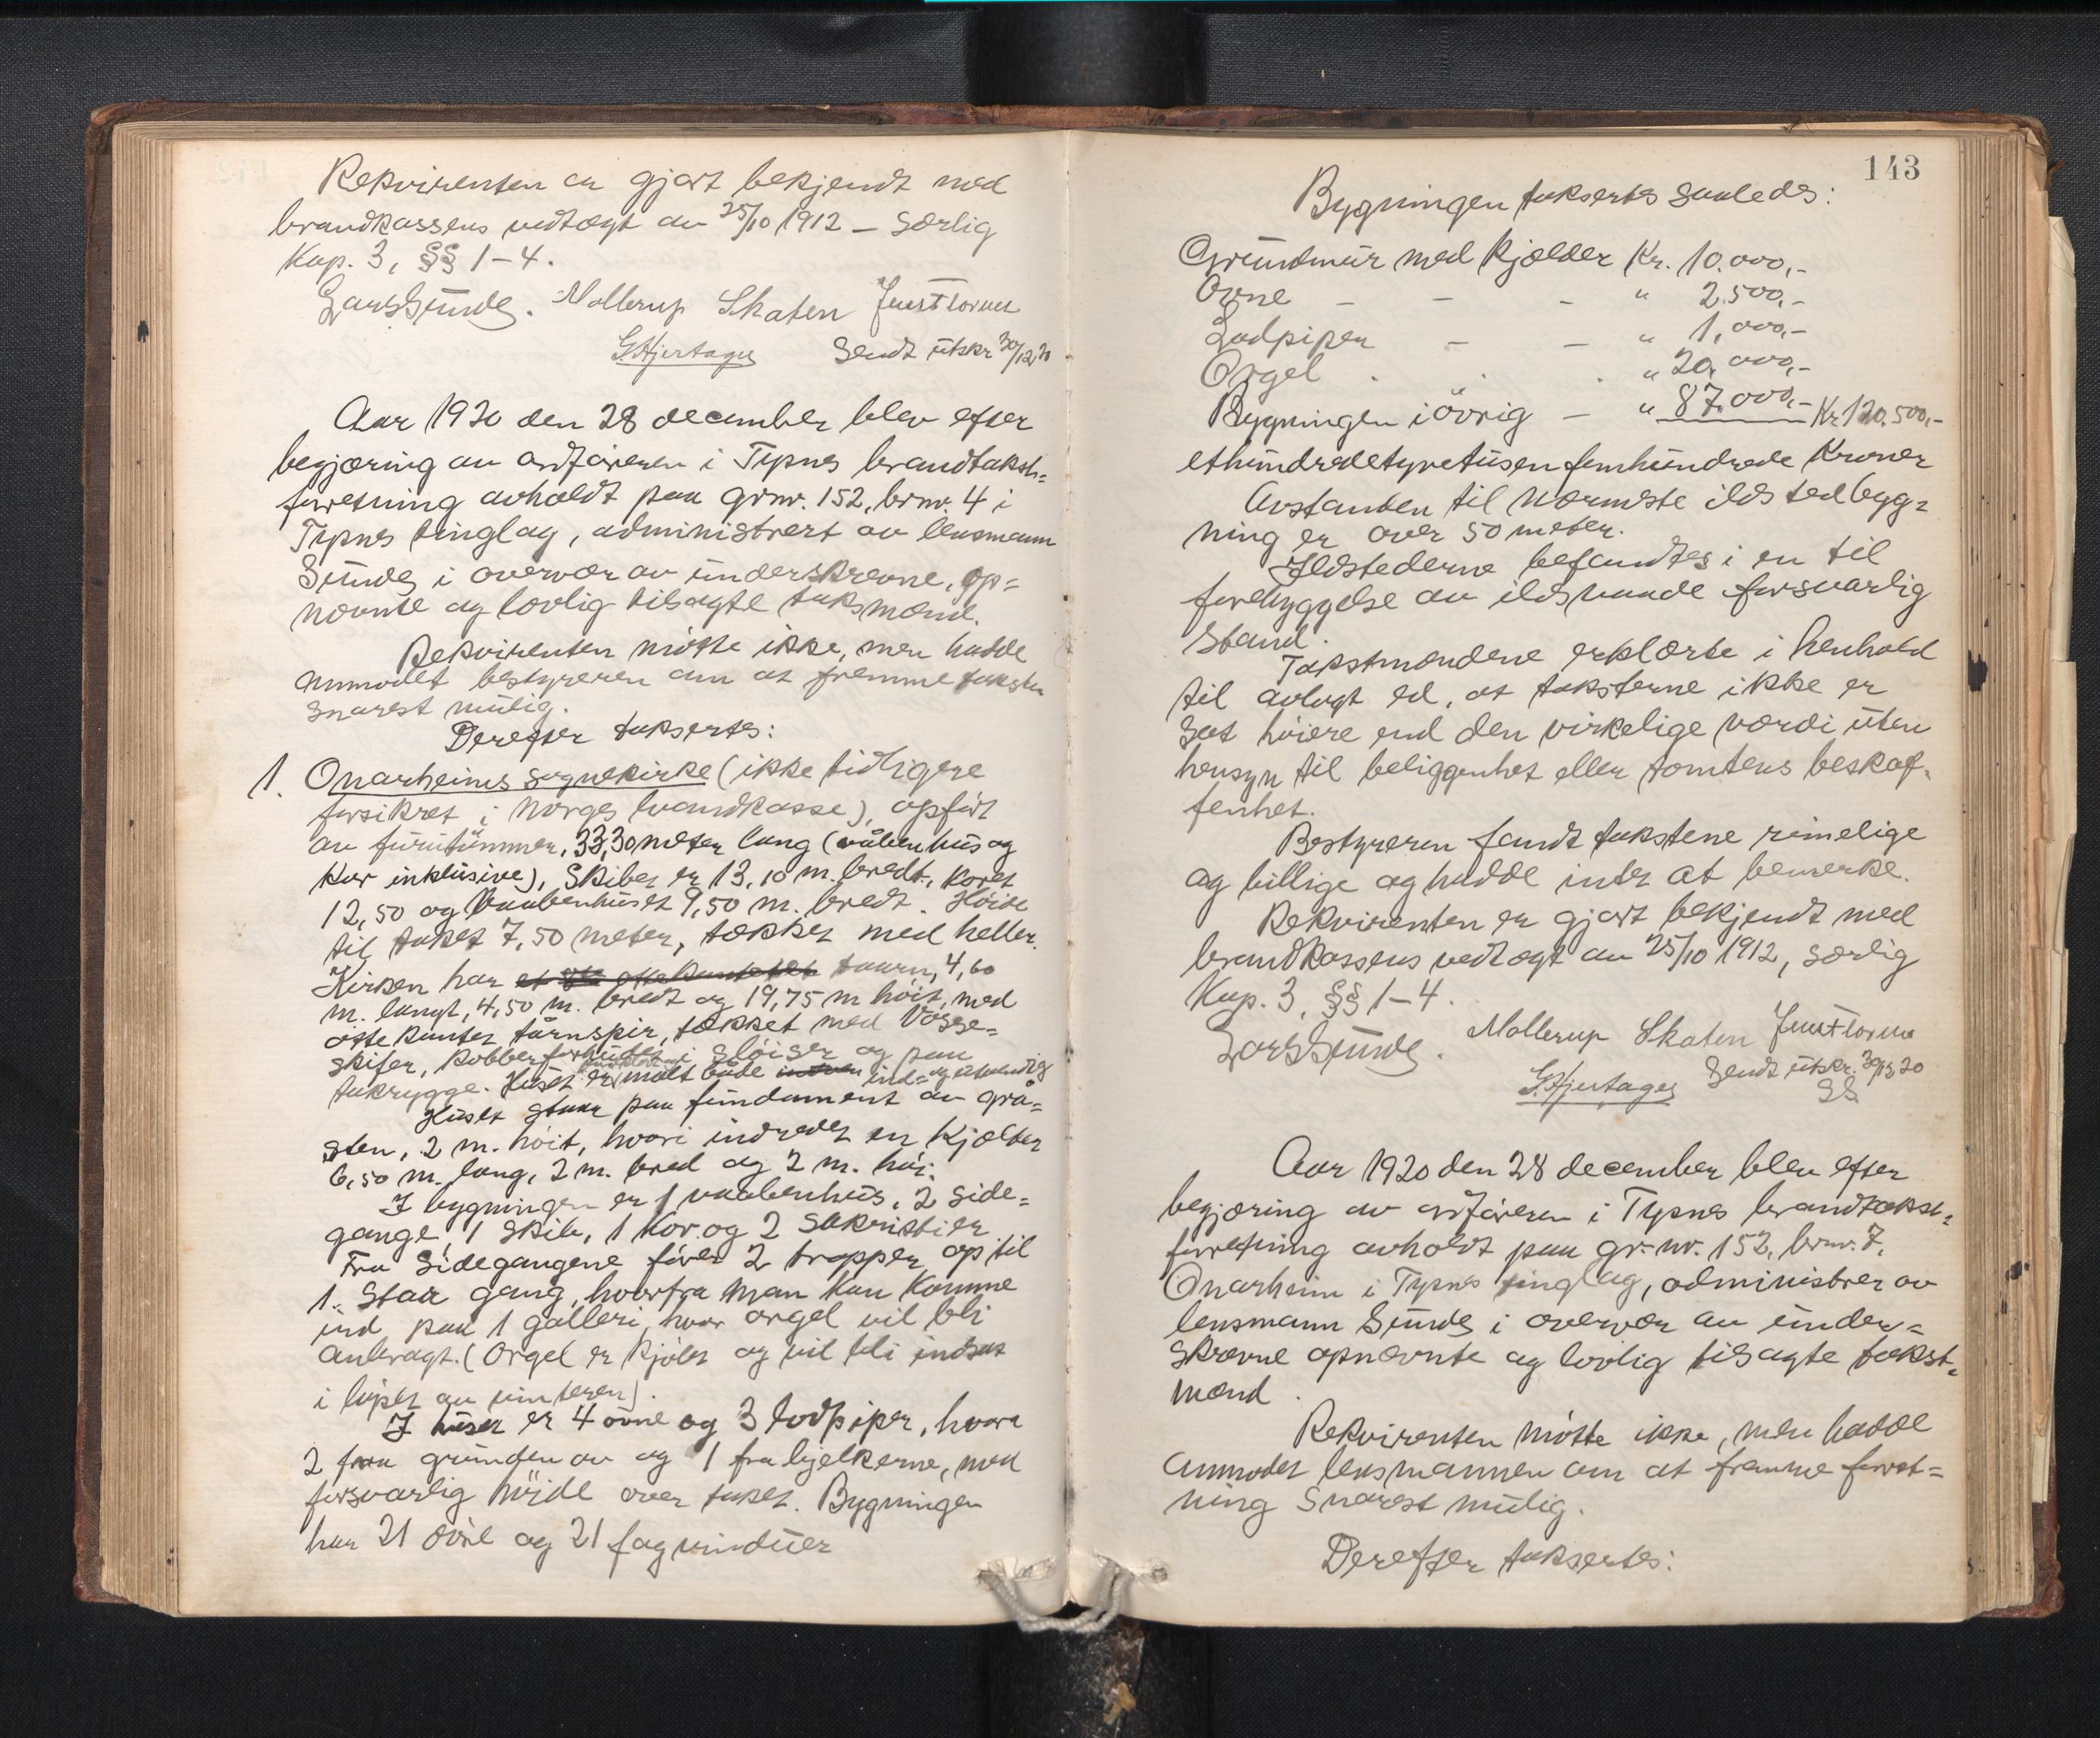 Rekvirenten er gjort bekjendt med
brandkassens vedtægt av 25/10 1912 – særlig
Kap. 3, §§ 1–4.
Lars Sunde. Mollerup Skaten
G. Hjertager Sendt utskr 30/12 20
Aar 1920 den 28 december blev efter
begjæring av ordføreren i Tysnes brandtakst=
forretning avholdt paa grnr. 152, brnr. 4 i
Tysnes tinglag, administrert av lensmann
Sunde i overvær av underskrevne, op=
nævnte og lovlig tilsagte taksmænd.
Rekvirenten møtte ikke, men hadde
anmodet bestyreren om at fremme taksten
snarest mulig.
Derefter taksertes:
1. Onarheims sognekirke (ikke tidligere
forsikret i Norges brandkasse), opført
av furutømmer, 33,30 meter lang (våbenhus og
kor inklusive), Skibet er 13,10 m. bredt, koret
12,50 og Vaabenhuset 9,50 m. bredt. Høide
til taket 7,50 meter, tækket med heller.
Kirken har et ottekantetet taarn, 4,60
m. langt, 4,50 m. bredt og 19,75 m høit, med
ottekantet tårnspir, tækket med Vosse=
skifer, kobberforhudet i sløiser og paa
takrygge. Huset er malt både ind= og utvendig
Huset staar paa fundament av grå=
sten, 2 m. høit, hvori indredet en kjælder
6,50 m. lang, 2 m. bred og 2 m. høi.
I bygningen er 1 vaabenhus, 2 side=
gange 1 skib, 1 kor og 2 sakristier
Fra Sidegangene fører 2 trapper op til
1. Star gang, hvorfra man kan komme
ind paa 1 galleri, hvor orgel vil bli
anbragt. (Orgel er kjøbt og vil bli indsat
i løpet av vinteren).
I huset er 4 ovne og 3 lodpiper, hvora
2 fraa grunden av og 1 fra bjelkerne, med
forsvarlig høide over taket. Bygningen
har 21 døre og 21 fag vinduer
143
Bygningen taksertes saaledes:
Grundmur med kjælder Kr. 10.000,-
Ovne – – – " 2.500,-
Lodpiper – – " 1.000,-
Orgel . . . " 20.000,-
Bygningen i øvrig – " 87.000,- Kr 120.500,-
ethundredetyvetusenfemhundrede Kroner
Avstanden til nærmeste ildstedbygg=
ning er over 50 meter.
Ildstederne befandtes i en til
forebyggelse av ildsvaade forsvarlig
stand.
Takstmændene erklærte i henhold
til avlagt ed, at taksterne ikke er
sat høiere end den virkelige værdi uten
hensyn til beliggenhet eller tomtens beskaf=
fenhet.
Bestyreren fandt takstene rimelige
og billige og hadde intet at bemerke.
Rekvirenten er gjort bekjendt med
brandkassens vedtægt av 25/10 1912, særlig
Kap. 3, §§ 1–4.
Lars Sunde. Mollerup Skaten
G. Hjertager Sendt utskr. 30/12 20
Aar 1920 den 28 december blev efter
begjæring av ordføreren i Tysnes brandtakst=
forretning avholdt paa gr.nr. 152, brnr. 7,
Onarheim i Tysnes tinglag, administrer av
lensmann Sunde i overvær av under=
skrevne opnævnte og lovlig tilsagte takst=
mænd.
Rekvirenten møtte ikke, men hadde
anmodet lensmannen om at fremme forret=
ning snarest mulig.
Derefter taksertes: